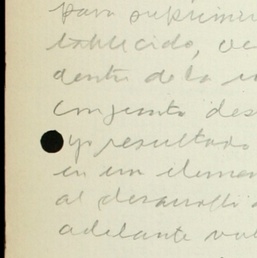 para suprimir
tablecido,
dentro de la
conjunto des
yo resultado
en un elemen
al desarrollo
adelante